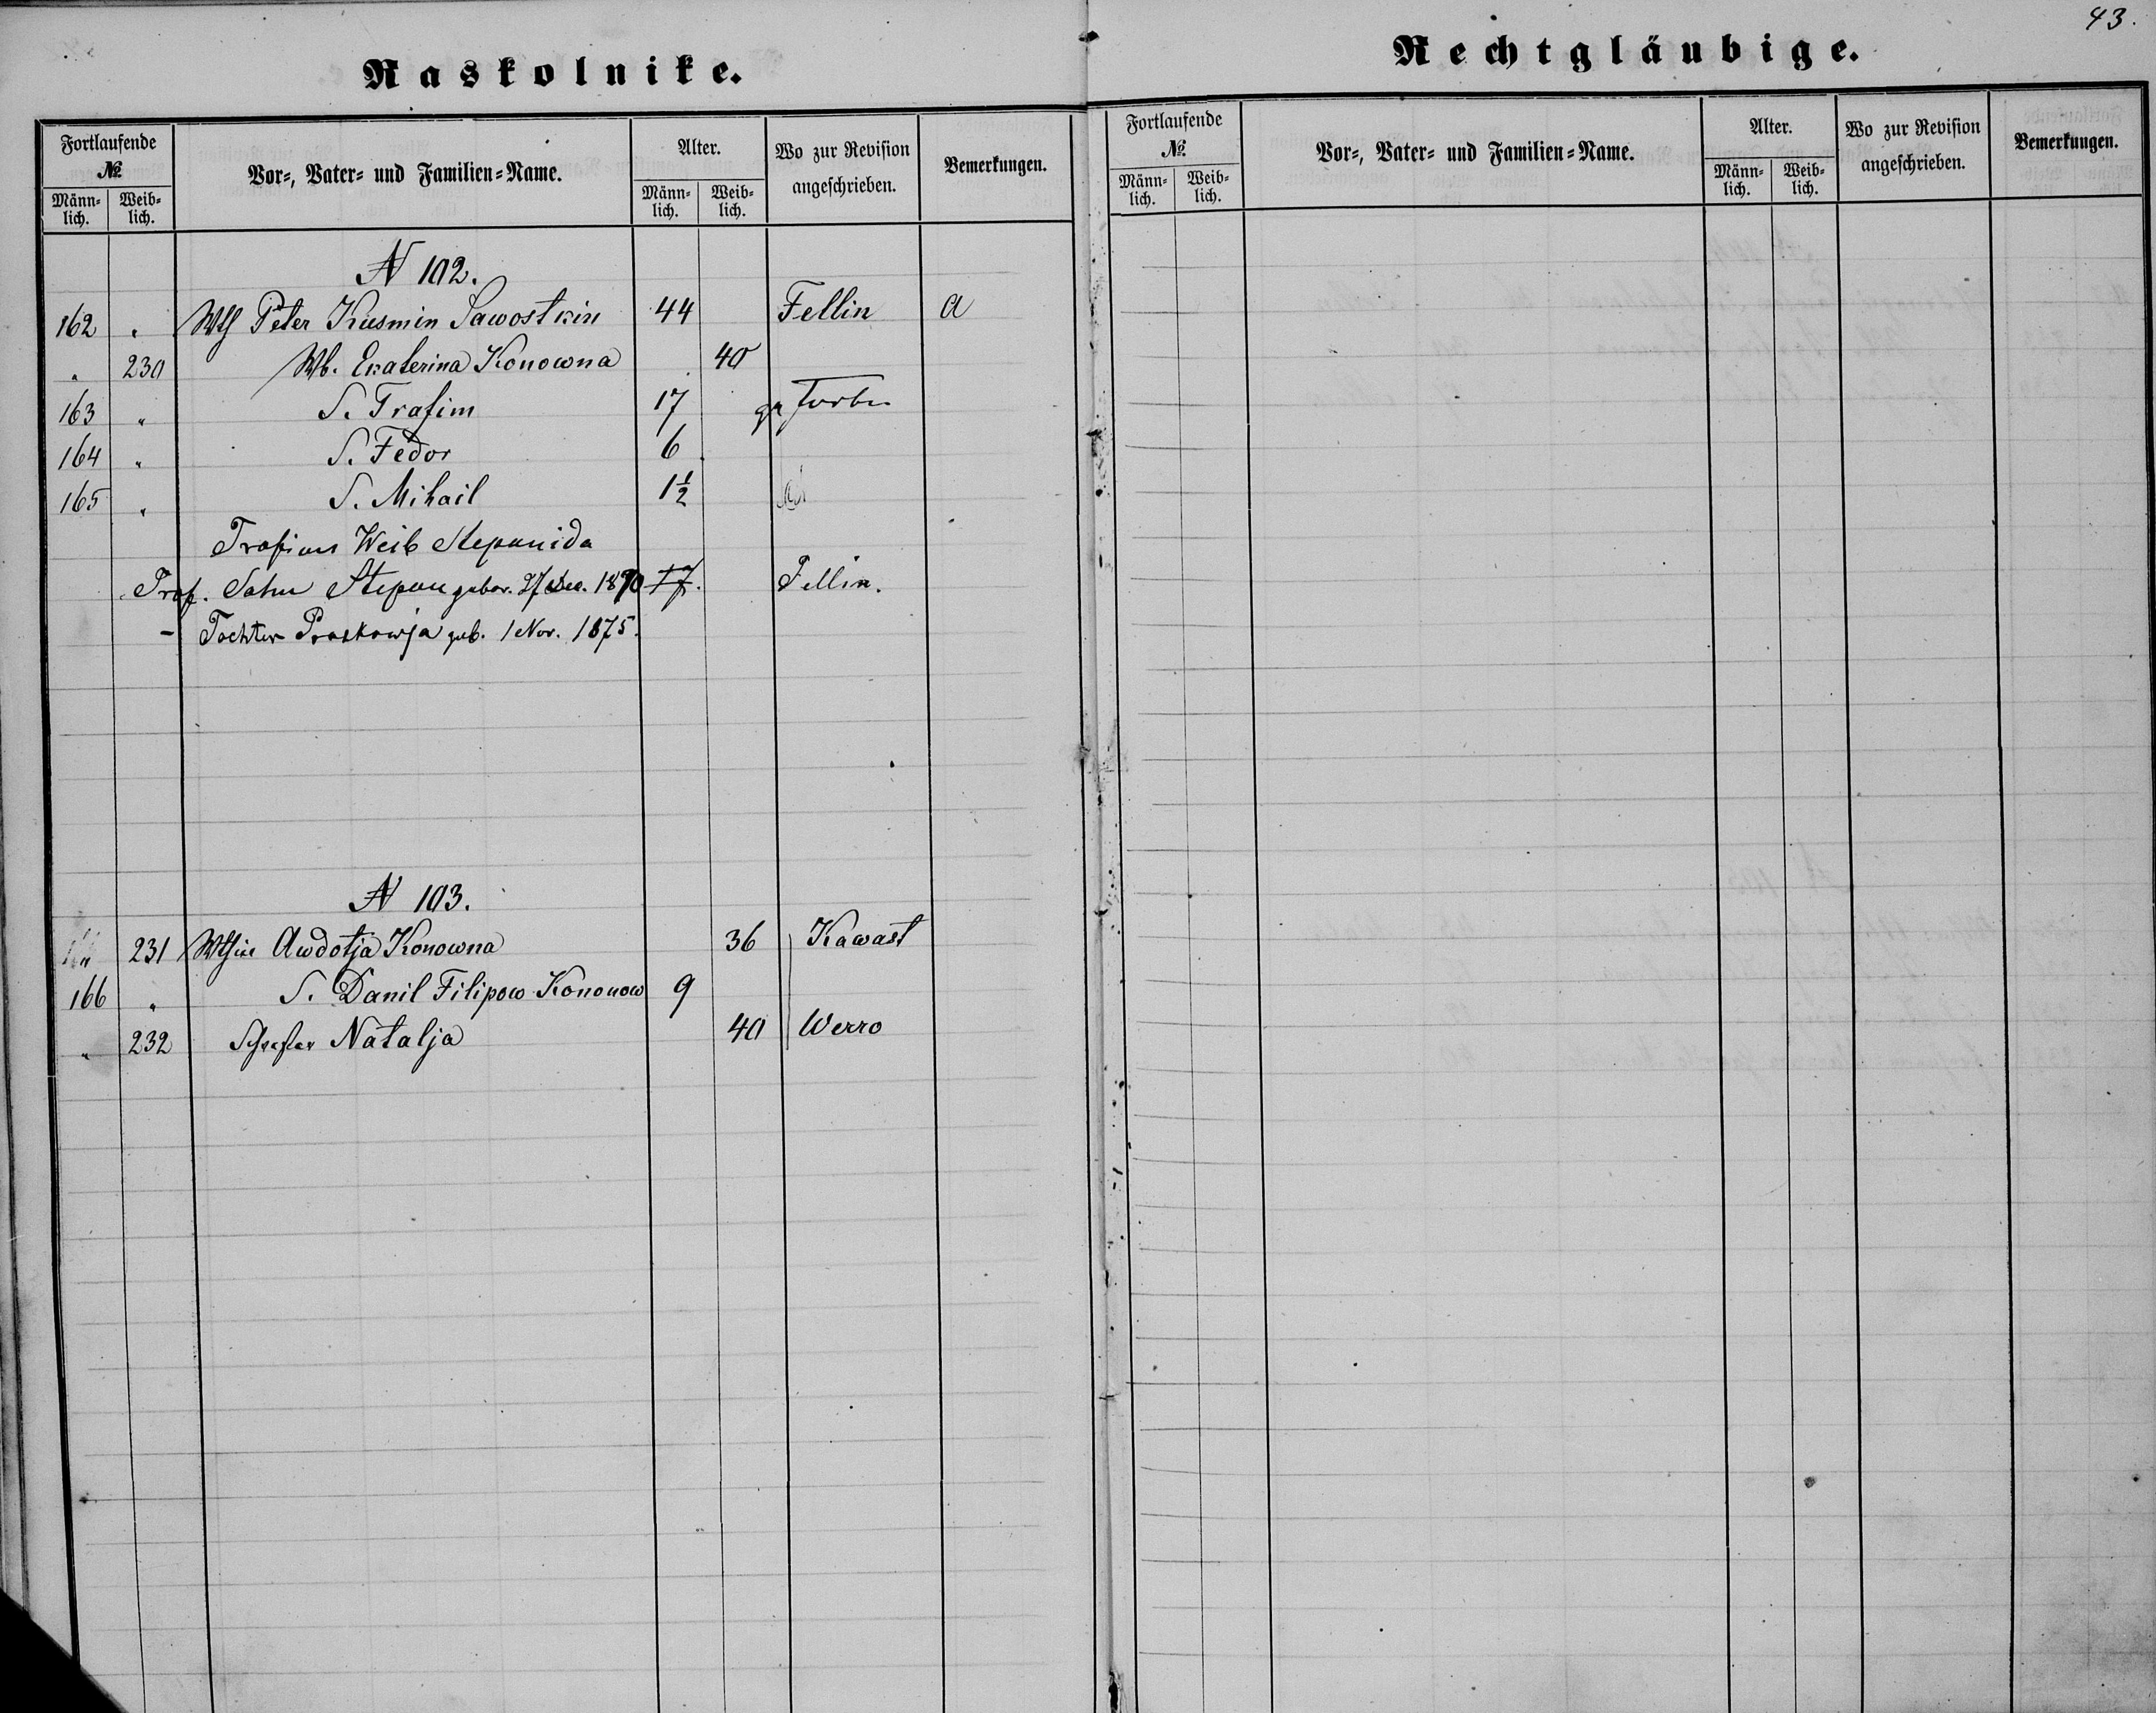 43.
Raskolnike.
Fortlaufende № Männ-lich. Weib-lich. Vor-, Vater- und Familien-Name. Alter. Männ-lich. Weib-lich. Wo zur Revision angeschrieben. Bemerkungen.
N 102.
162 " Wth Peter Kusmin Sawostkin 44 Fellin a
" 230 Wb. Ekaterina Konowna 40
163 " S. Trafim 17
164 " S. Fedor 6
165 " S. Mihail 1½
Trofims Weib Stepanida
Trof. Sohn Stepan gebor. 27 Dec. 1870 17. Fellin.
- Tochter Praskowja geb. 1 Nov. 1875.
N 103.
" 231 Wthin Awdotja Konowna 36 Kawast
166 " S. Danil Filipow Kononow 9
" 232 Schwester Natalja 40 Werro
Rechtgläubige.
Fortlaufende № Männ-lich. Weib-lich. Vor-, Vater- und Familien-Name. Alter. Männ-lich. Weib-lich. Wo zur Revision angeschrieben. Bemerkungen.